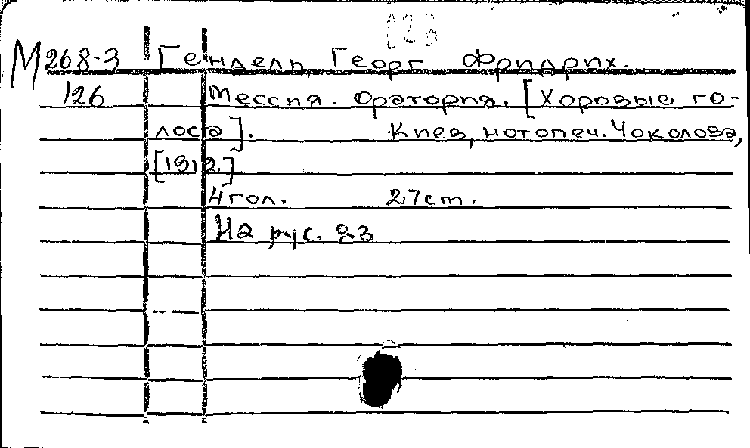 М 268-3 Гендель Георг Фридрих.
126 Мессия. Оратория. [Хоровые го-
лоса]. Киев, нотопеч. Чоколова,
[1912.]
4 гол. 27 cm.
На рус. яз